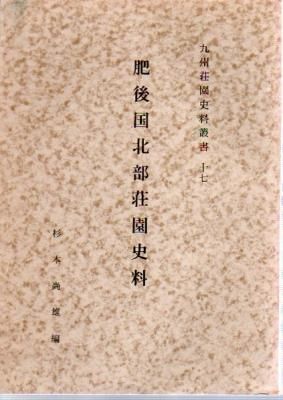 九州荘園史料叢書 十七
肥後国北部荘園史料
杉本尚雄編